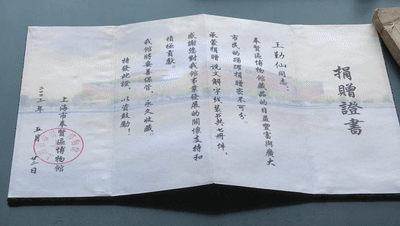 捐贈證書
王勤仙同志：
奉賢區博物館藏品的日益豐富與廣大
市民的踴躍捐贈密不可分。
承蒙捐贈說文解字線裝書共七冊件，
感謝您對我館事業發展的關懷支持和
積極貢獻。
我館將妥善保管，永久收藏。
特發此證，以資鼓勵！
上海市奉賢區博物館
年 五月 廿二日